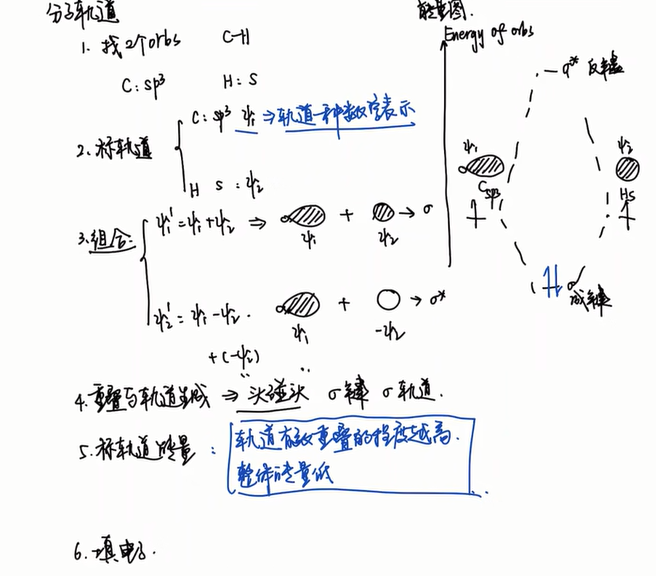 分子轨道
1. 找2个orbs C-H
C:sp³ H:S
2.标轨道
C:sp³ ψ₁⇒轨道一种数学表示
H S:ψ₂
3.组合:
ψ₁'=ψ₁+ψ₂ ⇒ + → σ
ψ₁ ψ₂
ψ₂'=ψ₁-ψ₂. + → σ*
+(-ψ₂) ψ₁ -ψ₂
4.重叠与轨道生成 ⇒ 头碰头 σ键 σ轨道.
5.标轨道能量:
轨道有效重叠的程度越高.
整体能量低
6.填电子.
能量图.
Energy of orbs
σ* 反键
ψ₁ ψ₂
Csp³ Hs
σ
成键